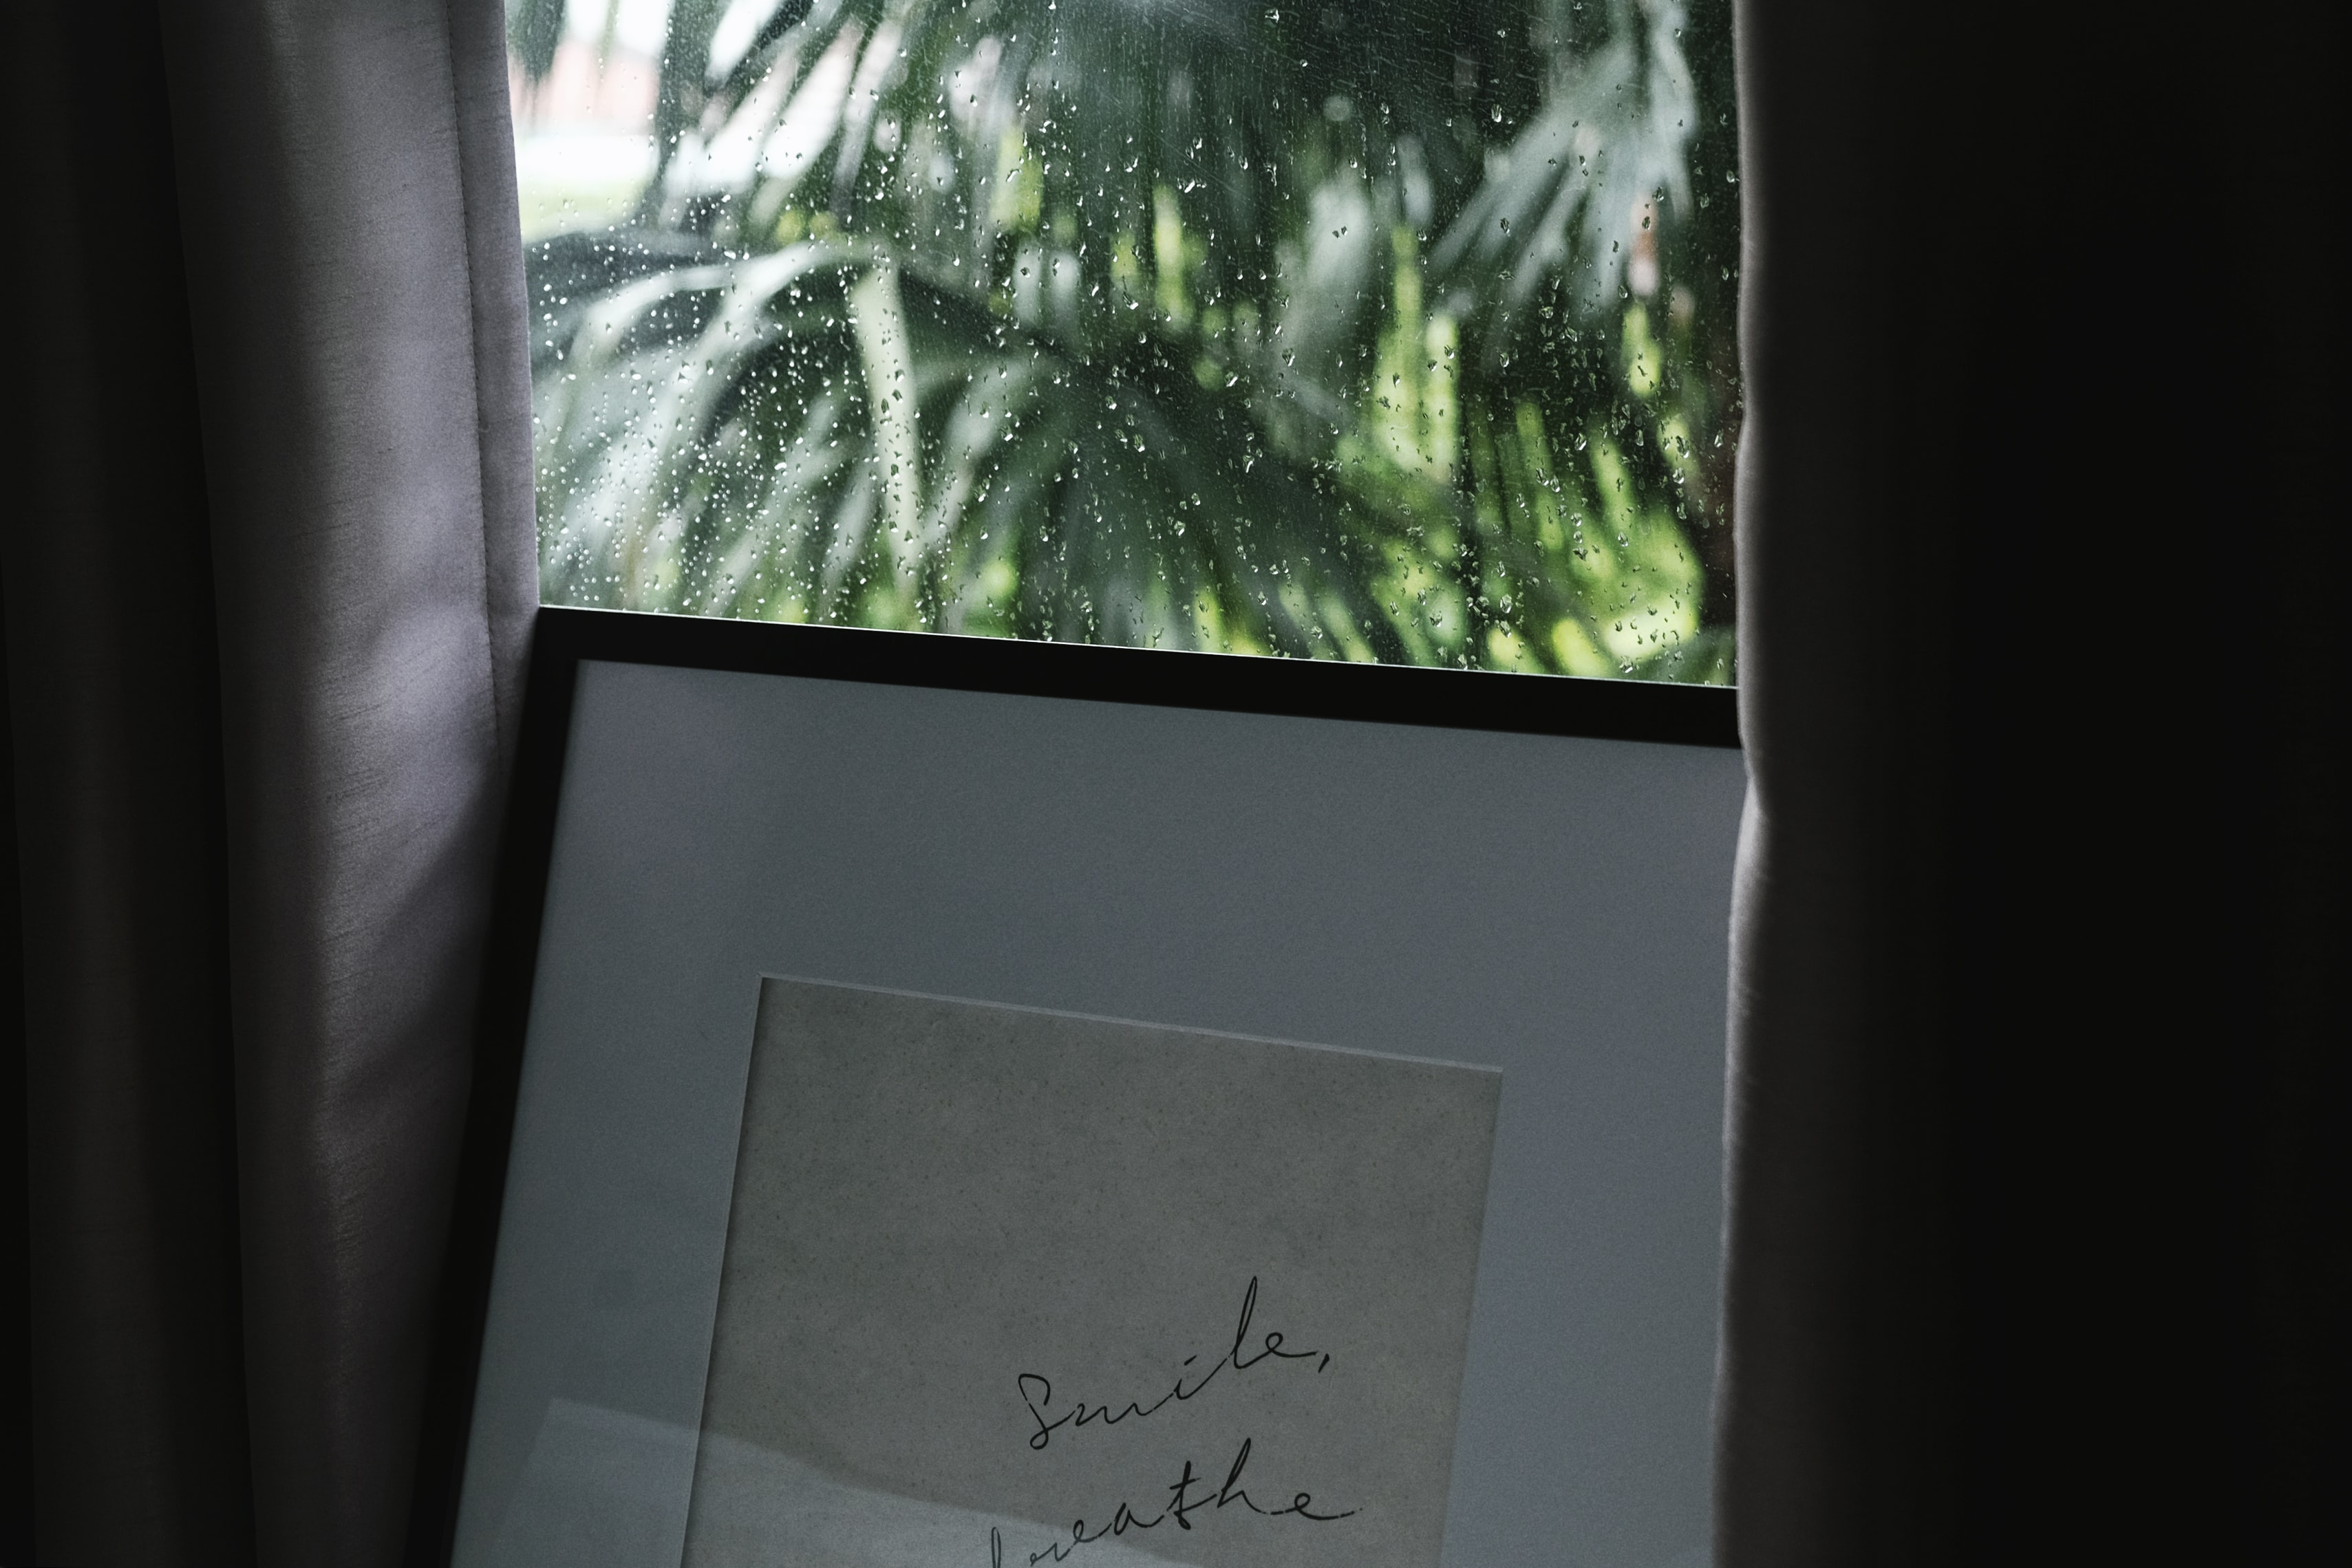 Smile,
breathe